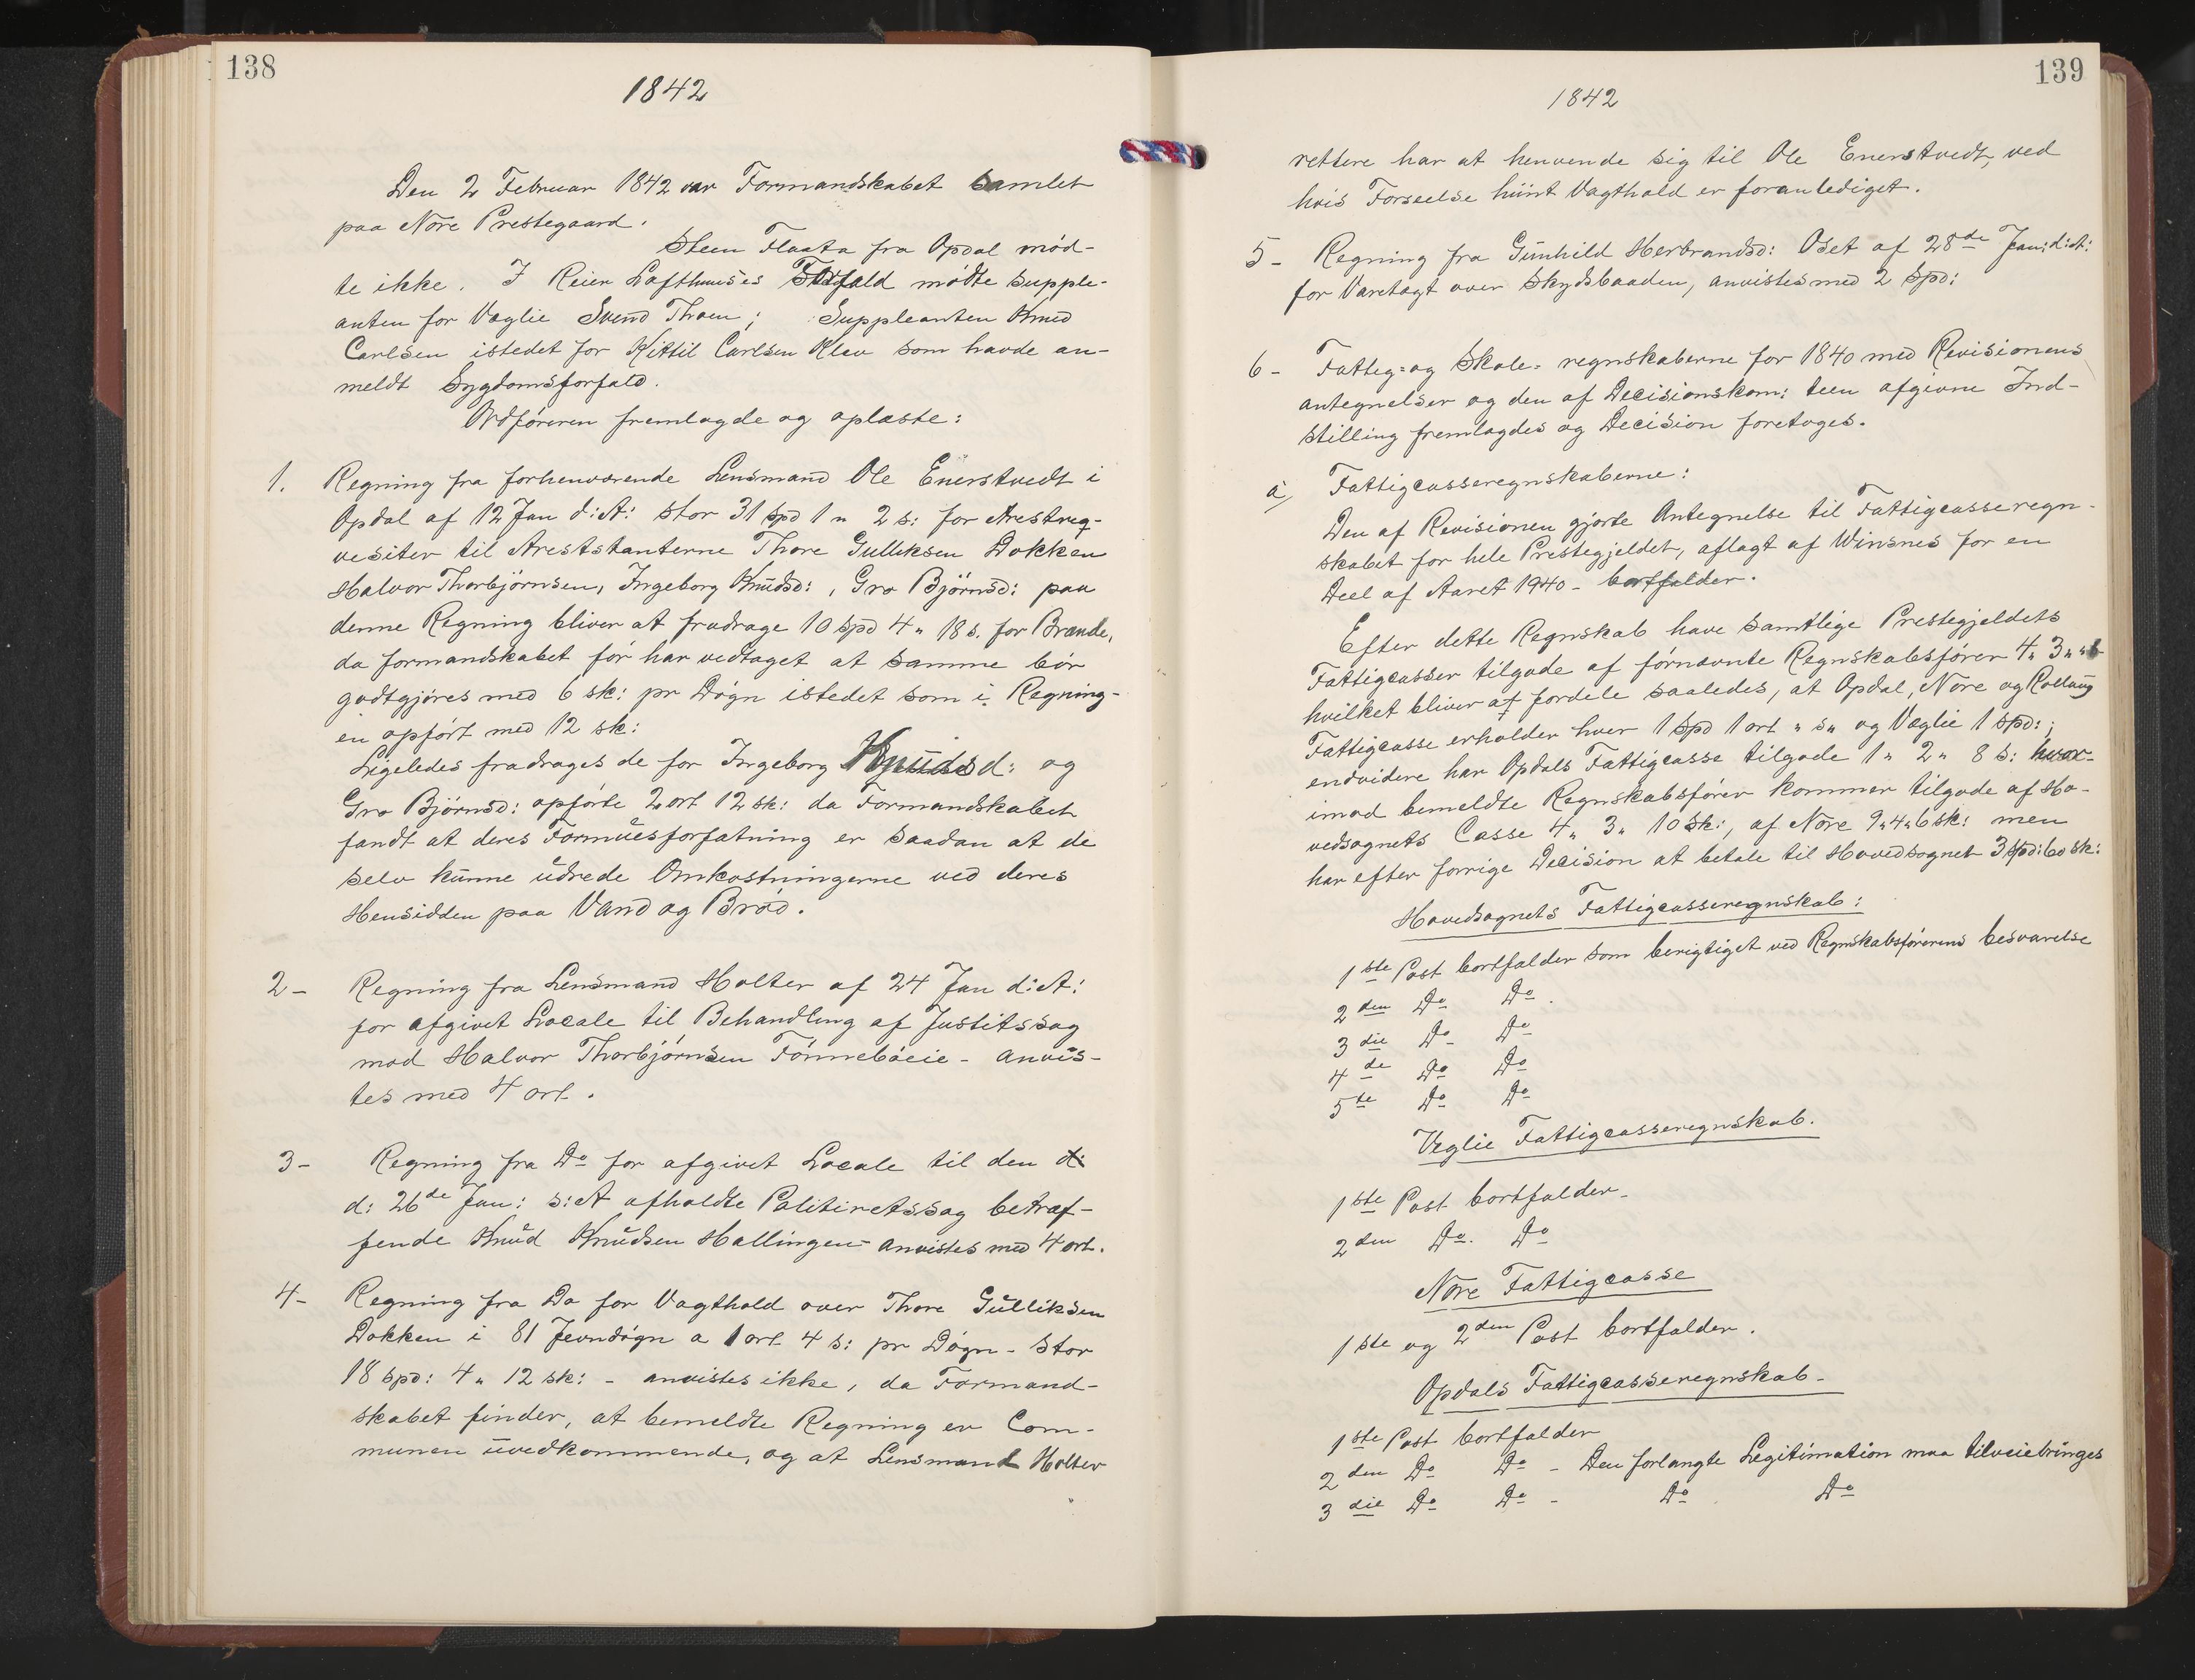 138
1842
Den 2 Februar 1842 var Formandskabet Samlet
paa Nore Prestegaard.
Steen Flaata fra Opdal mød-
te ikke. I Reier Lofthuuses Forfald mødte supple-
anten for Væglie Svend Thoen; Suppleanten Knud
Carlsen istedet for Kittil Carlsen Klev som havde an-
meldt Sygdomsforfald.
Ordføreren fremlagde og oplæste:
1. Regning fra forhenværende Lensmand Ole Enerstvedt i
Opdal af 12 Jan d:A: stor 31 spd 1 " 2 s: for Arestreq-
vesiter til Areststanterne Thore Gulliksen Dokken
Halvor Thorbjörnsen, Ingeborg Knudsd:, Gro Björnsd: paa
denne Regning bliver at fradrage 10 spd 4 " 18 s. for Brænde,
da formandskabet før har vedtaget at samme bör
godtgjøres med 6 sk: pr Døgn istedet som i Regning-
en opført med 12 sk:
Ligeledes fradrages de for Ingeborg Knudsd: og
Gro Björnsd: opførte 2 ort 12 sk: da Formandskabet
fandt at deres Formuesforfatning er saadan at de
selv kunne udrede Omkostningerne ved deres
Hensidden paa Vand og Brød.
2 - Regning fra Lensmand Holter af 24 Jan d:A:
for afgivet Locale til Behandling af Justitssag
mod Halvor Thorbjørnsen Fönneböeie - anvis-
tes med 4 ort.
3 - Regning fra Do for afgivet Locale til den d:
d: 26de Jan: s:A afholdte Politiretssag betræf-
fende Knud Knudsen Hallingen - anvistes med 4 ort.
4 - Regning fra Do for Vagthold over Thore Gulliksen
Dokken i 81 Jevndøgn a 1 ort 4 s: pr Døgn - stor
18 spd: 4 " 12 sk: - anvistes ikke, da Formand-
skabet finder, at bemeldte Regning er Com-
munen uvedkommende, og at Lensmand Holter
139
1842
rettere har at henvende sig til Ole Enerstvedt, ved
hvis Forseelse hiint Vagthold er foranlediget.
5 - Regning fra Gunhild Herbrandsd: Oset af 28de Jan: d:A:
for Varetagt over Skydsbaaden, anvistes med 2 Spd:
6 - Fattig= og Skole= regnskaberne for 1840 med Revisionens
antegnelser og den af Decisionskom: teen afgivne Ind-
stilling fremlagdes og Decision foretoges.
a) Fattigcasseregnskaberne:
Den af Revisionen gjorte Antegnelse til Fattigcasseregn-
skabet for hele Prestegjeldet, aflagt af Winsnes for en
Deel af Aaret 1940 - bortfalder.
Efter dette Regnskab have samtlige Prestegjeldets
Fattigcasser tilgode af førnævnte Regnskabsfører 4 " 3 " "
hvilket bliver at fordele saaledes, at Opdal, Nore og Rollaug
Fattigcasse erholder hver 1 spd 1 ort " s " og Væglie 1 spd:;
endvidere har Opdals Fattigcasse tilgode 1 " 2 " 8 s: hvor-
imod bemeldte Regnskabsfører kommer tilgode af Ho-
vedsognets Casse 4 " 3 " 10 Sk:, af Nore 9 " 4 " 6 sk: men
har efter forrige Decision at betale til Hovedsognet 3 spd: 60 sk:
Hovedsognets Fattigcasseregnskab:
1ste Post bortfalder som berigtiget ved Regnskabsførerens besvarelse
2den Do Do.
3die Do Do
4de Do Do
5te Do Do
Veglie Fattigcasseregnskab.
1ste Post bortfalder -
2den Do. Do
Nore Fattigcasse
1ste og 2den Post bortfalder.
Opdals Fattigcasseregnskab -
1ste Post bortfalder
2den Do Do - Den forlangte Legitimation maa tilveiebringes
3die Do Do - Do Do